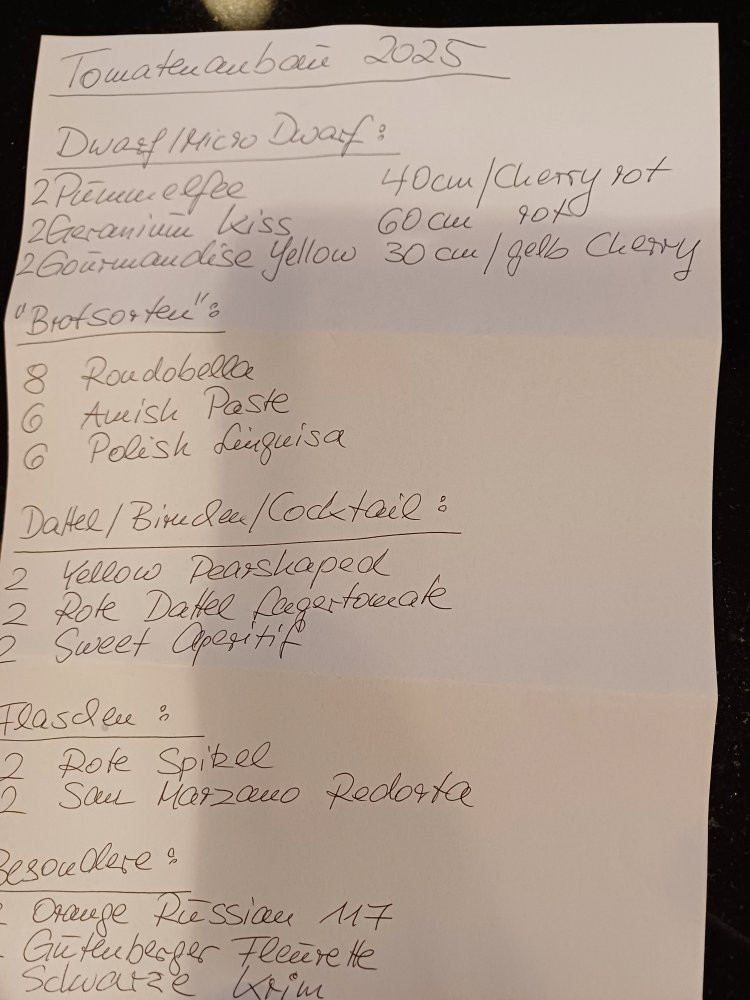 Tomatenanbau 2025
Dwarf/Micro Dwarf:
2 Pummelfee 40cm/Cherry rot
2 Geranium Kiss 60cm rot
2 Gourmandise Yellow 30 cm/gelb Cherry
"Brotsorten":
8 Rondobella
6 Amish Paste
6 Polish Linguisa
Dattel/Birnden/Cocktail:
2 Yellow Pearshaped
2 Rote Dattel Lagertomate
2 Sweet Aperitif
Flaschen:
2 Rote Spitzel
2 San Marzano Redorta
Besondere:
Orange Russian 117
Gutenberger Fleurette
Schwarze Krim